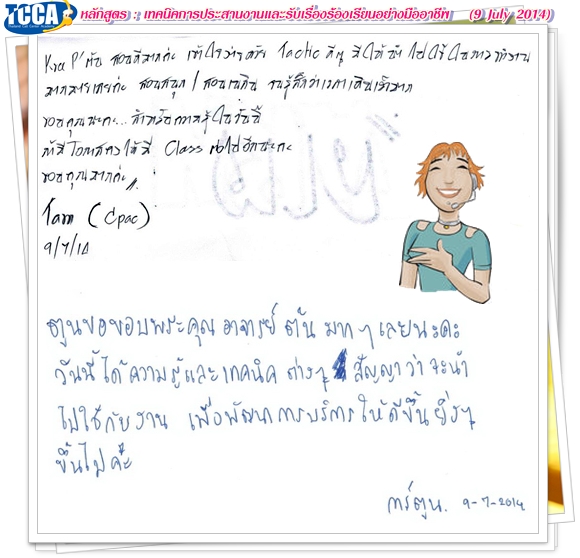 TCCA หลักสูตร : เทคนิคการประสานงานและรับเรื่องร้องเรียนอย่างมืออาชีพ (9 July 2014)
สอนดีมากค่ะ เข้าใจง่ายด้วย Tactic
มากมายเลยค่ะ สอนสนุก / สอนเพลิน จนรู้สึกว่าเวลาเดินเร็วมาก
ขอบคุณนะคะ... สำหรับความรู้ในวันนี้
ถ้ามีโอกาสคงได้มี Class ต่อไปอีกนะคะ
ขอบคุณมากค่ะ
(Cpac)
9/7/14
ตูนขอขอบพระคุณ อาจารย์ ต้น มากๆ เลยนะคะ
วันนี้ได้ความรู้และเทคนิค ต่างๆ สัญญาว่าจะนำ
ไปใช้กับงาน เพื่อพัฒนาการบริการให้ดีขึ้น ยิ่งๆ
ขึ้นไปค่ะ
การ์ตูน. 9-7-2014